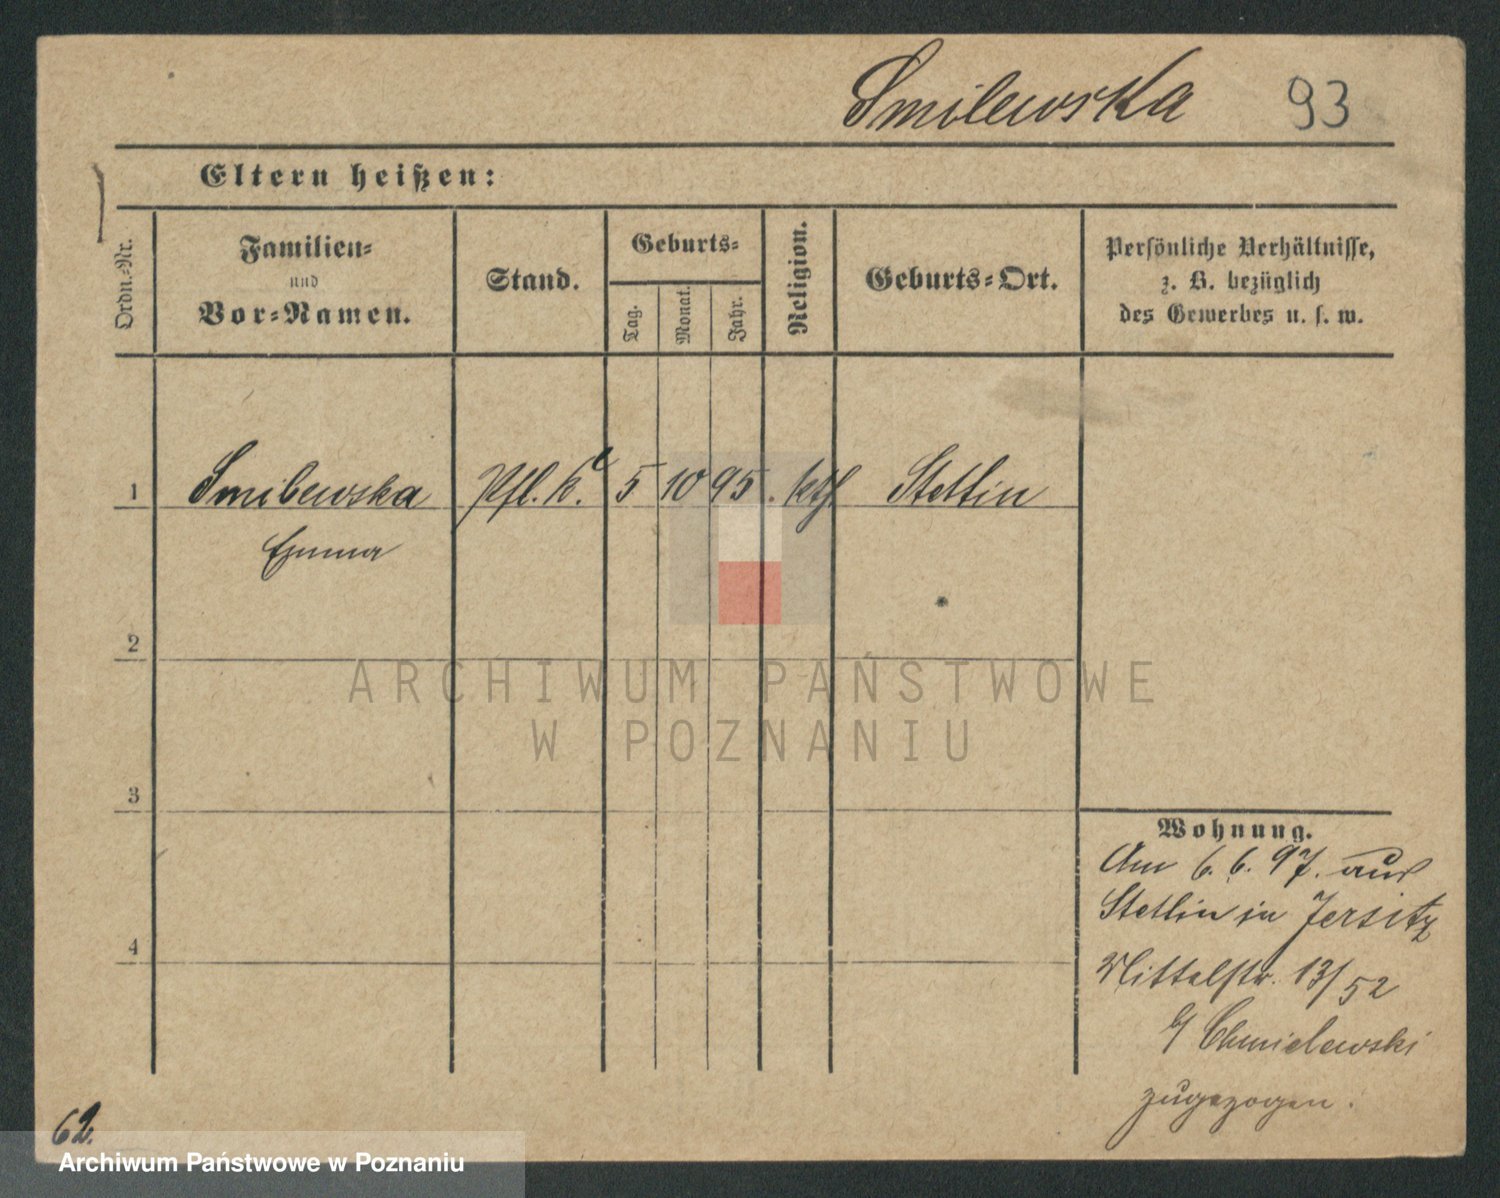 Smilewska 93
Eltern heißen:
Ordn.-Nr.
Familien-
und
Vor-Namen.
Stand.
Geburts-
Tag.
Monat.
Jahr.
Religion.
Geburts-Ort.
Persönliche Verhältnisse,
z. B. bezüglich
des Gewerbes u. s. w.
1 Smilewska Pfl. K. 5 10 95. kth Stettin
Emma
2
3
4
Wohnung.
Am 6.6.97. aus
Stettin in Jersitz
Mittelstr. 13/52
b/ Chmielewski
zugezogen.
62.
ARCHIWUM PAŃSTWOWE
W POZNANIU
Archiwum Państwowe w Poznaniu